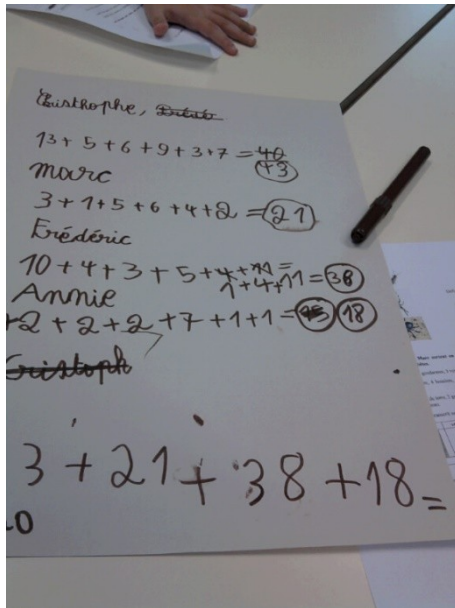 Cristhophe,
13 + 5 + 6 + 9 + 3 + 7 = 40
43
Marc
3 + 1 + 5 + 6 + 4 + 2 = 21
Frédéric
10 + 4 + 3 + 5 + 4 + 11 =
1 + 4 + 11 = 38
Annie
+2 + 2 + 2 + 7 + 1 + 1 = 15 18
7
Cristoph
3 + 21 + 38 + 18 =
0